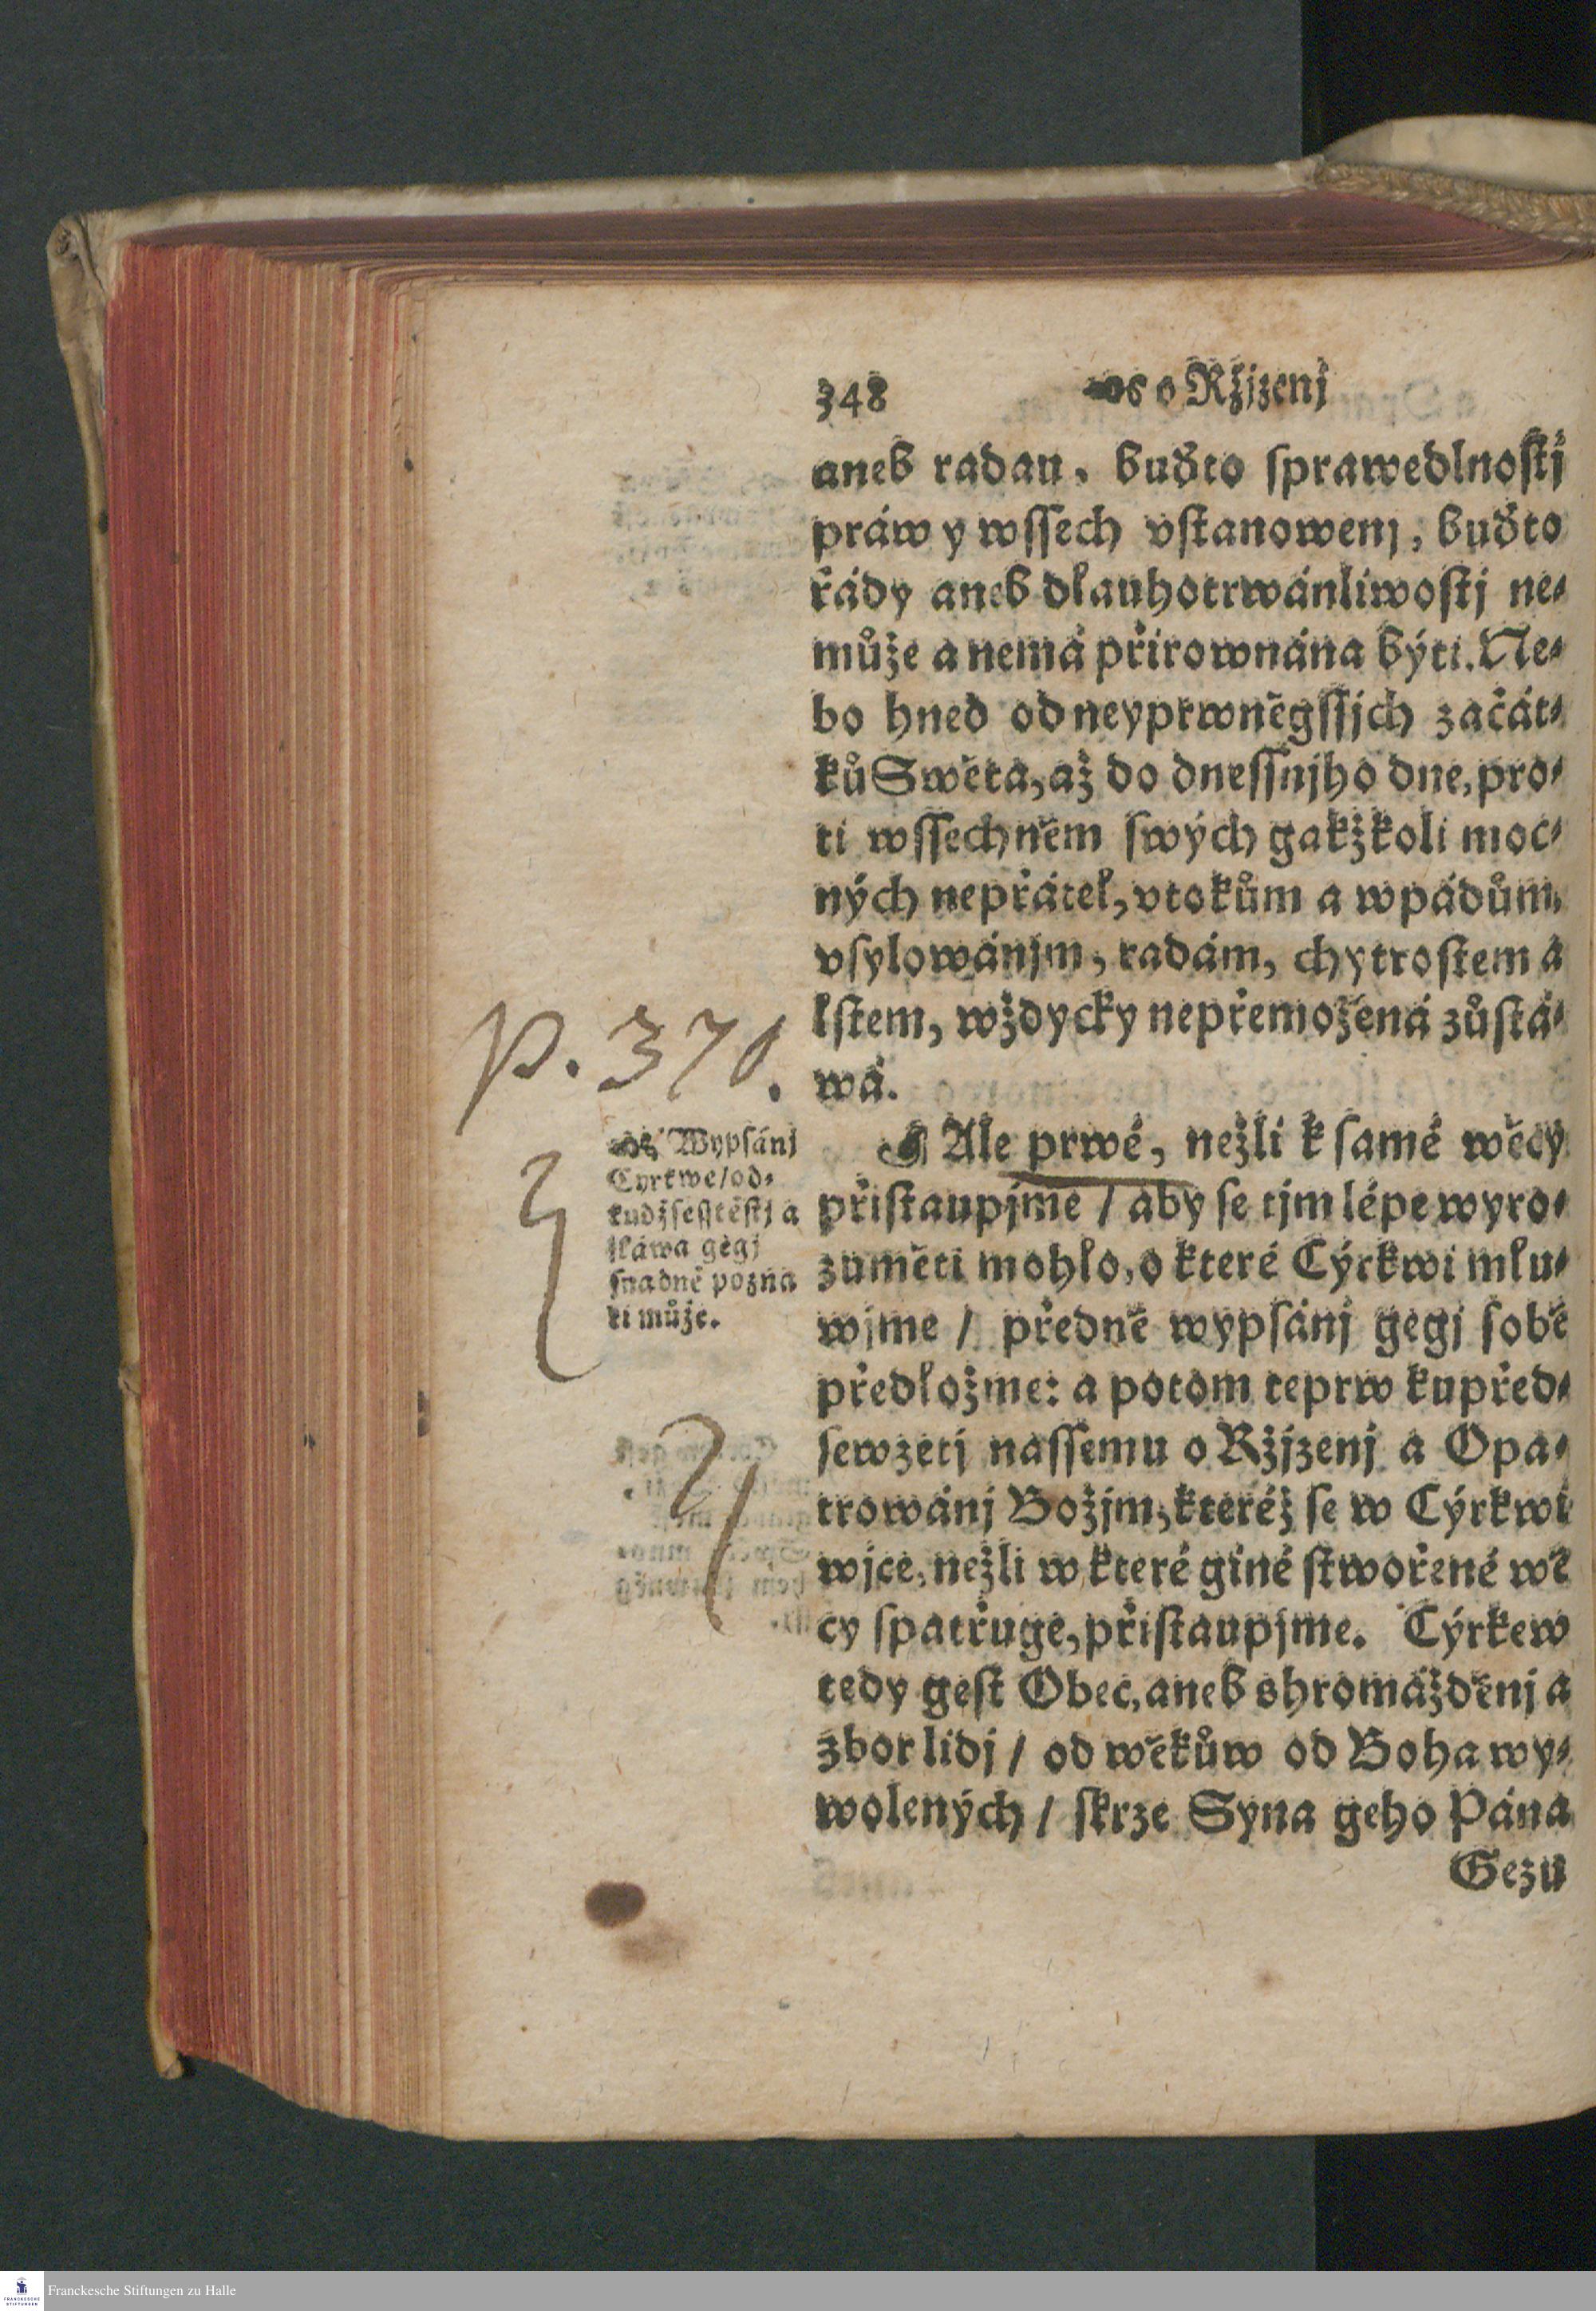 348 o Ržjzenj
aneb radau, buďto sprawedlnostj
práw y wssech vstanowenj, buďto
řády aneb dlauhotrwánliwostj ne-
může a nemá přirownána býti. Ne-
bo hned od neyprwněgssjch začát-
ků Swěta, až do dnessnjho dne, pro-
ti wssechněm swých gakžkoli moc-
ných nepřátel, vtokům a wpádům,
vsylowánjm, radám, chytrostem a
lstem, wždycky nepřemožená zůstá-
wá.
p. 370.
Wypsánj
Cyrkwe / od-
kudž sesstěstj a
sláwa gegj
snadně pozna
ti může.
¶ Ale prwé, nežli k samé wěcy
přistaupjme / aby se tjm lépe wyro-
zuměti mohlo, o které Cýrkwi mlu-
wjme / předně wypsánj gegj sobě
předložme: a potom teprw ku před-
sewzetj nassemu o Ržjzenj a Opa-
trowánj Božjm, kteréž se w Cýrkwi
wjce, nežli w které giné stwořené wě
cy spatřuge, přistaupjme. Cýrkew
tedy gest Obec, aneb shromážděnj a
zbor lidj / od wěkůw od Boha wy-
wolených / skrze Syna geho Pána
Gezu
Franckesche Stiftungen zu Halle